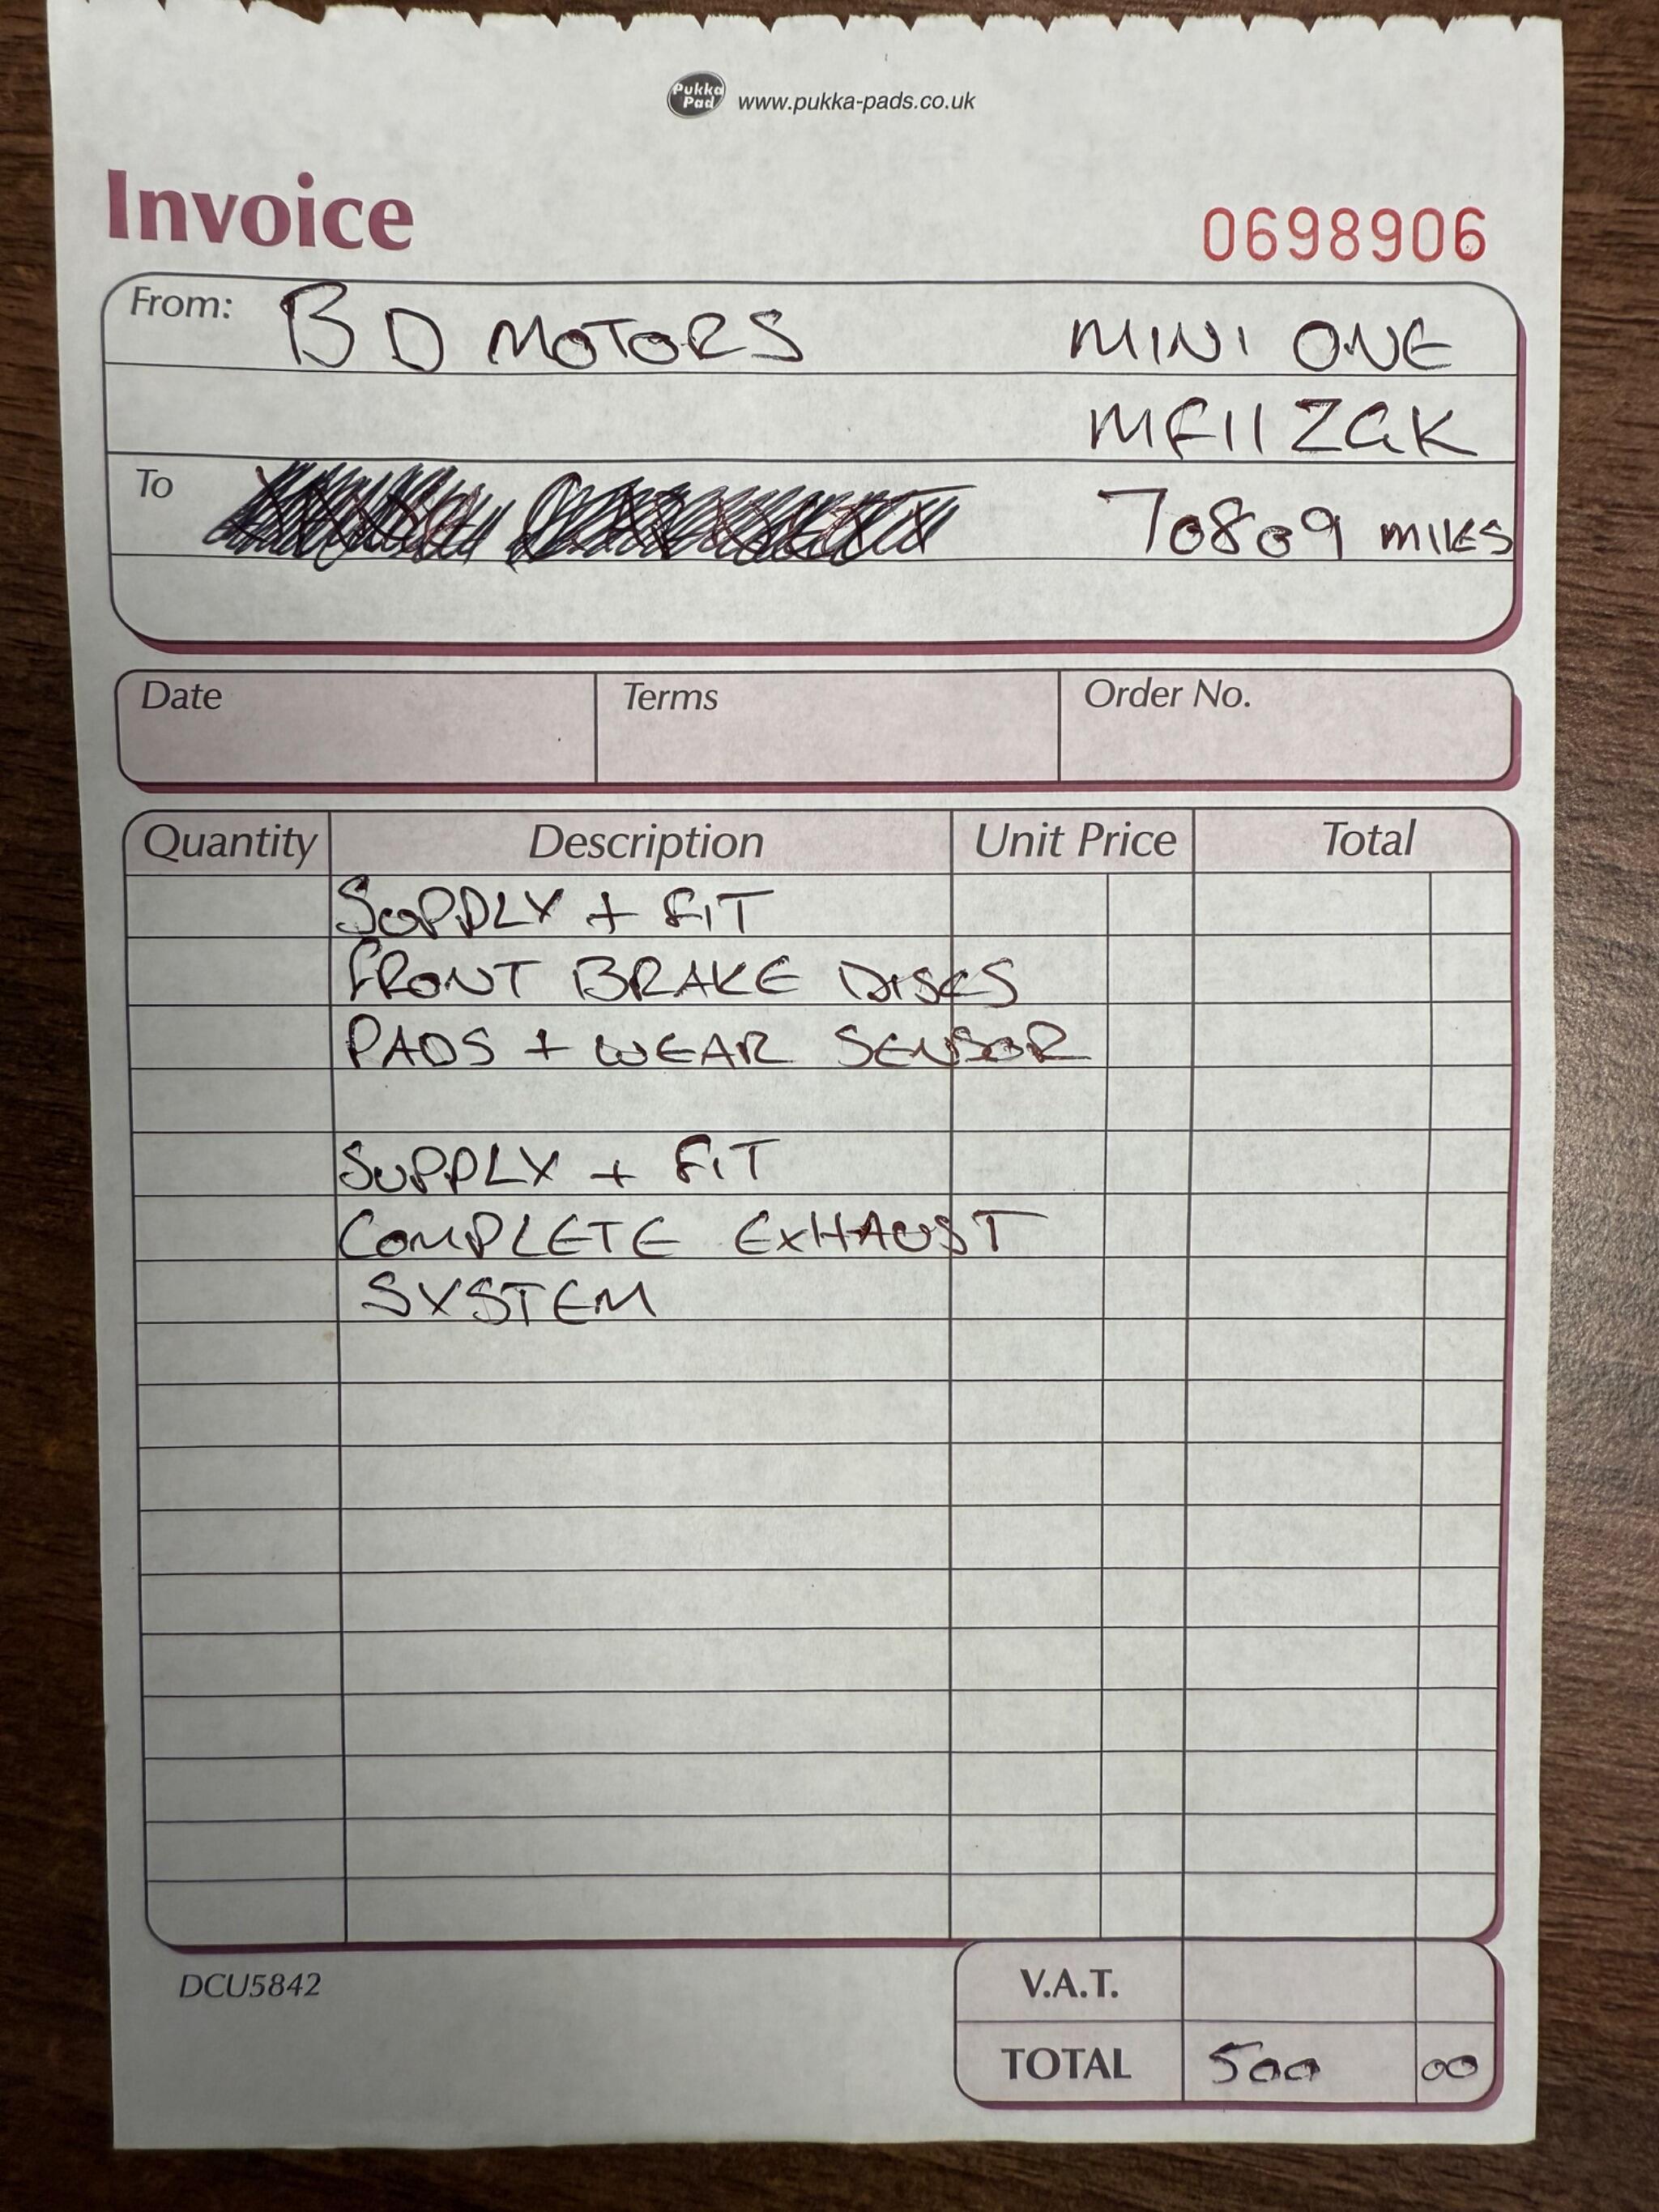 Pukka Pad www.pukka-pads.co.uk
Invoice 0698906
From: BD MOTORS MINI ONE
MF11 ZGK
To 70809 MILES
Date Terms Order No.
Quantity Description Unit Price Total
SUPPLY + FIT
FRONT BRAKE DISCS
PADS + WEAR SENSOR
SUPPLY + FIT
COMPLETE EXHAUST
SYSTEM
DCU5842 V.A.T.
TOTAL 500 00